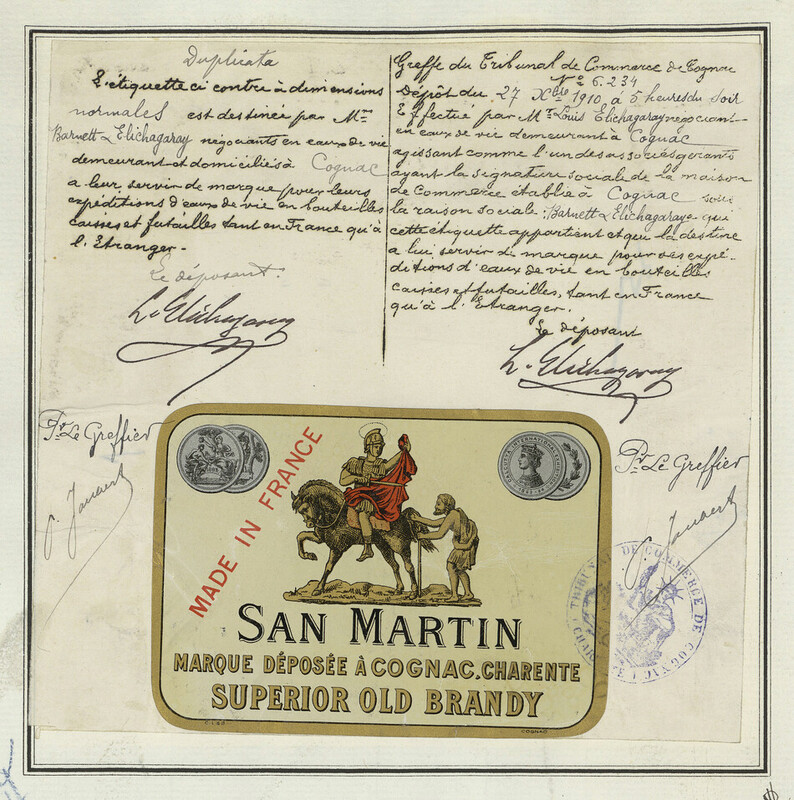 Duplicata
L'étiquette ci contre à dimensions
normales est destinée par Mrs
Barnett & Elichagaray négociants en eaux de vie
demeurant et domiciliés à Cognac
a leur servir de marque pour leurs
expéditions d'eaux de vie en bouteilles
caisses et futailles tant en France qu'à
l'Etranger.-
Le déposant.
L. Elichagaray
Greffe du Tribunal de Commerce de Cognac
No 6.234
Dépôt du 27 Xbre 1910 à 5 heures du soir
Effectué par Mr Louis Elichagaray négociant
en eaux de vie demeurant à Cognac
agissant comme l'un des associés gérants
ayant la signature sociale de la maison
de Commerce établie à Cognac sous
la raison sociale: Barnett & Elichagaray qui
cette étiquette appartient et qui la destine
a lui servir de marque pour ses expé-
ditions d'eaux de vie en bouteilles
caisses et futailles, tant en France
qu'à l'Etranger.
Le déposant
L. Elichagaray
Pr. Le Greffier
Pr. Le Greffier
MADE IN FRANCE
CALCUTTA INTERNATIONAL EXHIBITION
1883-84
SAN MARTIN
MARQUE DÉPOSÉE À COGNAC.CHARENTE
SUPERIOR OLD BRANDY
COGNAC
TRIBUNAL DE COMMERCE DE COGNAC